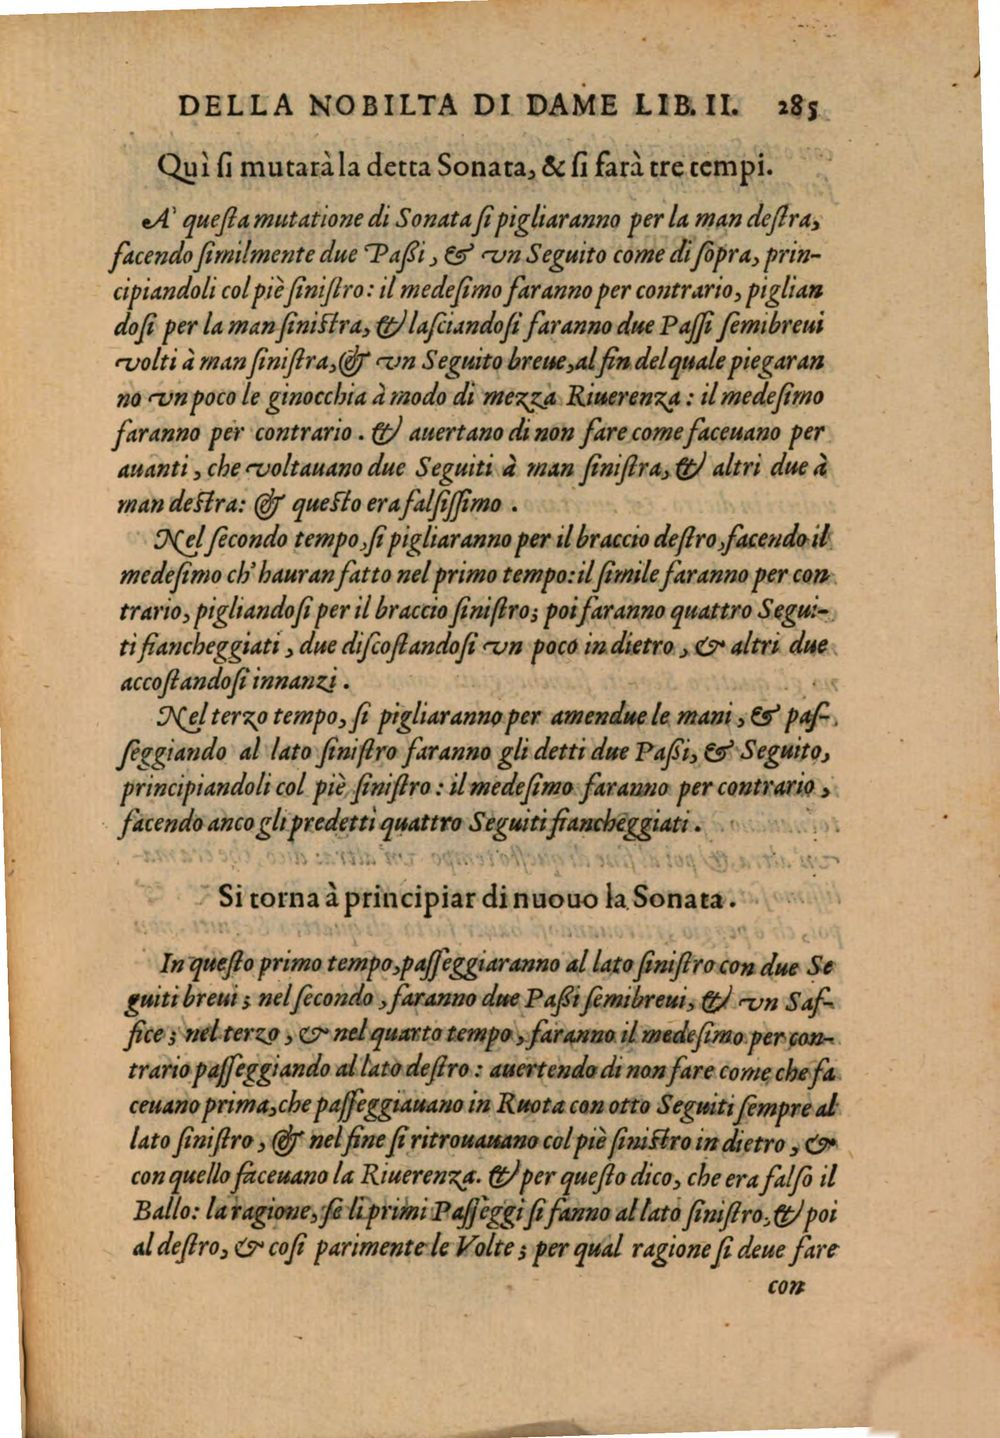 DELLA NOBILTA DI DAME LIB. II. 285
Quì ſi mutarà la detta Sonata, & ſi farà tre tempi.
A' queſta mutatione di Sonata ſi pigliaranno per la man deſtra,
facendo ſimilmente due Paßi, & vn Seguito come di ſopra, prin-
cipiandoli col piè ſiniſtro: il medeſimo faranno per contrario, piglian
doſi per la man ſiniſtra, & laſciandoſi faranno due Paſſi ſemibreui
volti à man ſiniſtra, & vn Seguito breue, al fin del quale piegaran
no vn poco le ginocchia à modo di mezza Riuerenza: il medeſimo
faranno per contrario. & auertano di non fare come faceuano per
auanti, che voltauano due Seguiti à man ſiniſtra, & altri due à
man deſtra: & queſto era falſiſſimo.
Nel ſecondo tempo, ſi pigliaranno per il braccio deſtro, facendo il
medeſimo ch' hauran fatto nel primo tempo: il ſimile faranno per con
trario, pigliandoſi per il braccio ſiniſtro; poi faranno quattro Segui-
ti fiancheggiati, due diſcoſtandoſi vn poco in dietro, & altri due
accoſtandoſi innanzi.
Nel terzo tempo, ſi pigliaranno per amendue le mani, & paſ-
ſeggiando al lato ſiniſtro faranno gli detti due Paßi, & Seguito,
principiandoli col piè ſiniſtro: il medeſimo faranno per contrario,
facendo anco gli predetti quattro Seguiti fiancheggiati.
Si torna à principiar di nuouo la Sonata.
In queſto primo tempo, paſſeggiaranno al lato ſiniſtro con due Se
guiti breui; nel ſecondo, faranno due Paßi ſemibreui, & vn Saf-
fice; nel terzo, & nel quarto tempo, faranno il medeſimo per con-
trario paſſeggiando al lato deſtro: auertendo di non fare come che fa
ceuano prima, che paſſeggiauano in Ruota con otto Seguiti ſempre al
lato ſiniſtro, & nel fine ſi ritrouauano col piè ſiniſtro in dietro, &
con quello faceuano la Riuerenza. & per queſto dico, che era falſo il
Ballo: la ragione, ſe li primi Paſſeggi ſi fanno al lato ſiniſtro, & poi
al deſtro, & coſi parimente le Volte; per qual ragione ſi deue fare
con